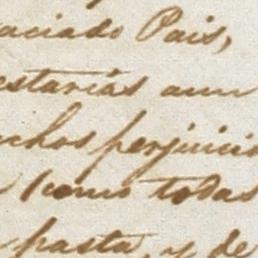 aciado Pais,
estarias aun
uchos perjuicio
como todas
pasta, y de